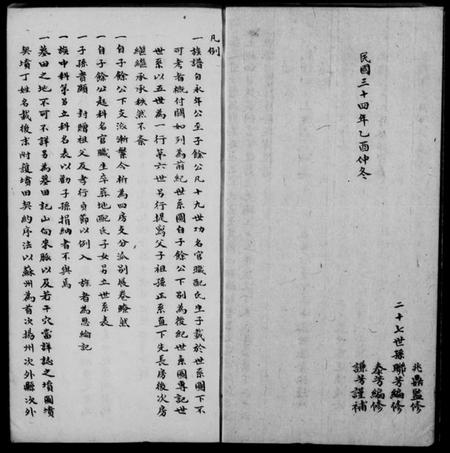 民國三十四年乙酉仲冬
二十七世孫
兆鼎監修
聯芳編修
泰芳編修
謙芳謹補
凡例
一族譜自永年公至子餘公凡十九世功名官職配氏生子載於世系圖下不
可考者概付闕如列為前紀世系圖自子餘公下別為後紀世系圖專記世
世系以五世為一行第六世另行提寫父子祖孫正系直下先長房後次房
繼繼承承秩然不紊
一自子餘公下支派漸繁今析為四房支分派別展卷瞭然
一自子餘公起科名官職生卒葬地配氏子女另立世系表
一子孫貴顯 封贈祖父及孝行貞節以例入 旌者為恩綸記
一族中科第另立科名表以勸子孫捐納者不與焉
一墓田之地不可不詳另為墓田記山向來脈以及若干穴當詳誌之墳圖墳
糞墳丁姓名載後京附護墳田契約序法以蘇州為首次揚州次外縣次外